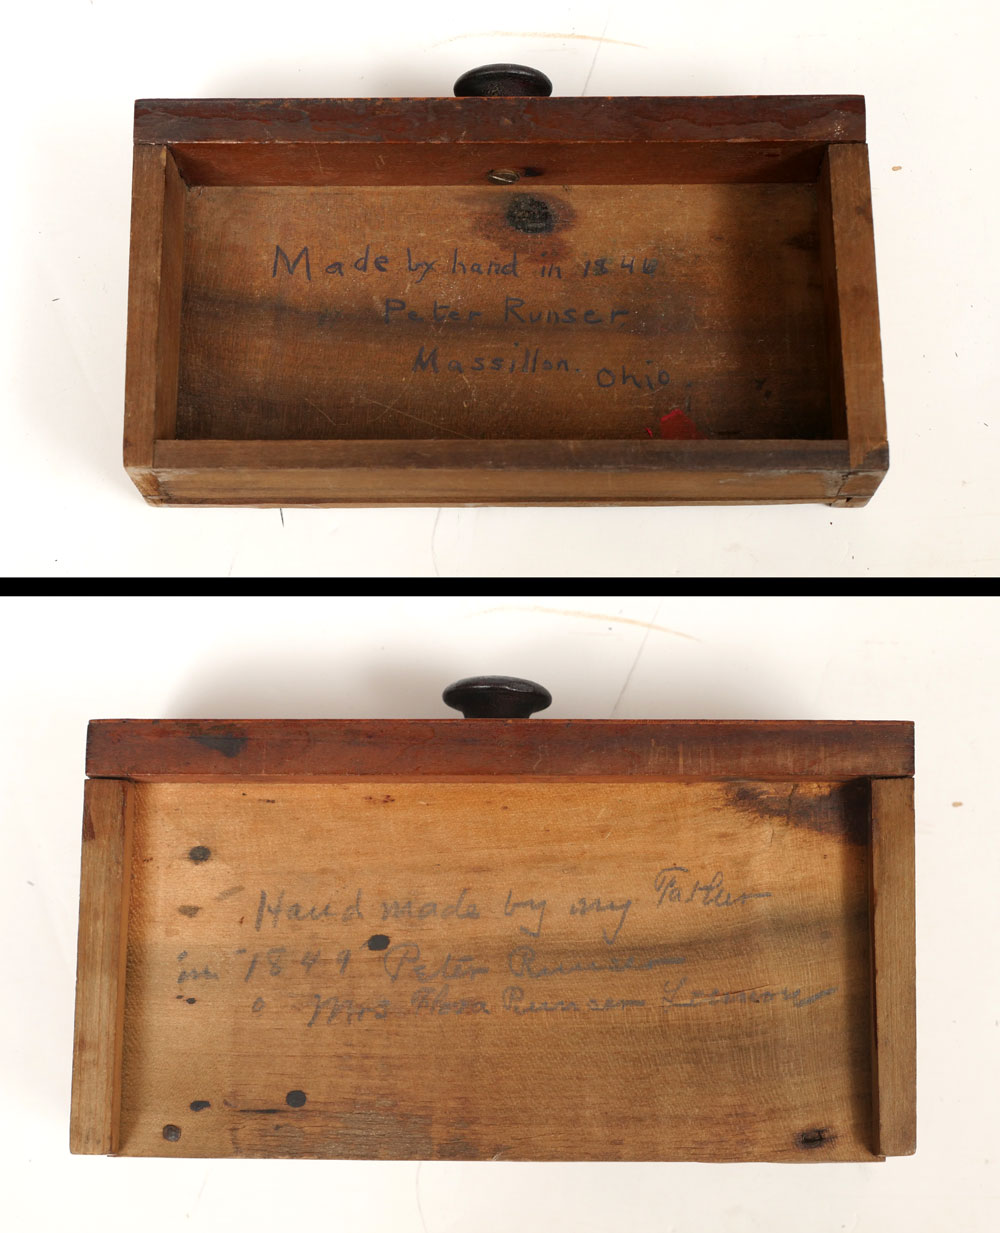 Made by hand in 1846
Peter Runser
Massillon. Ohio
Hand made by my Father
in 1849 Peter Runser
Mrs Flora Runser